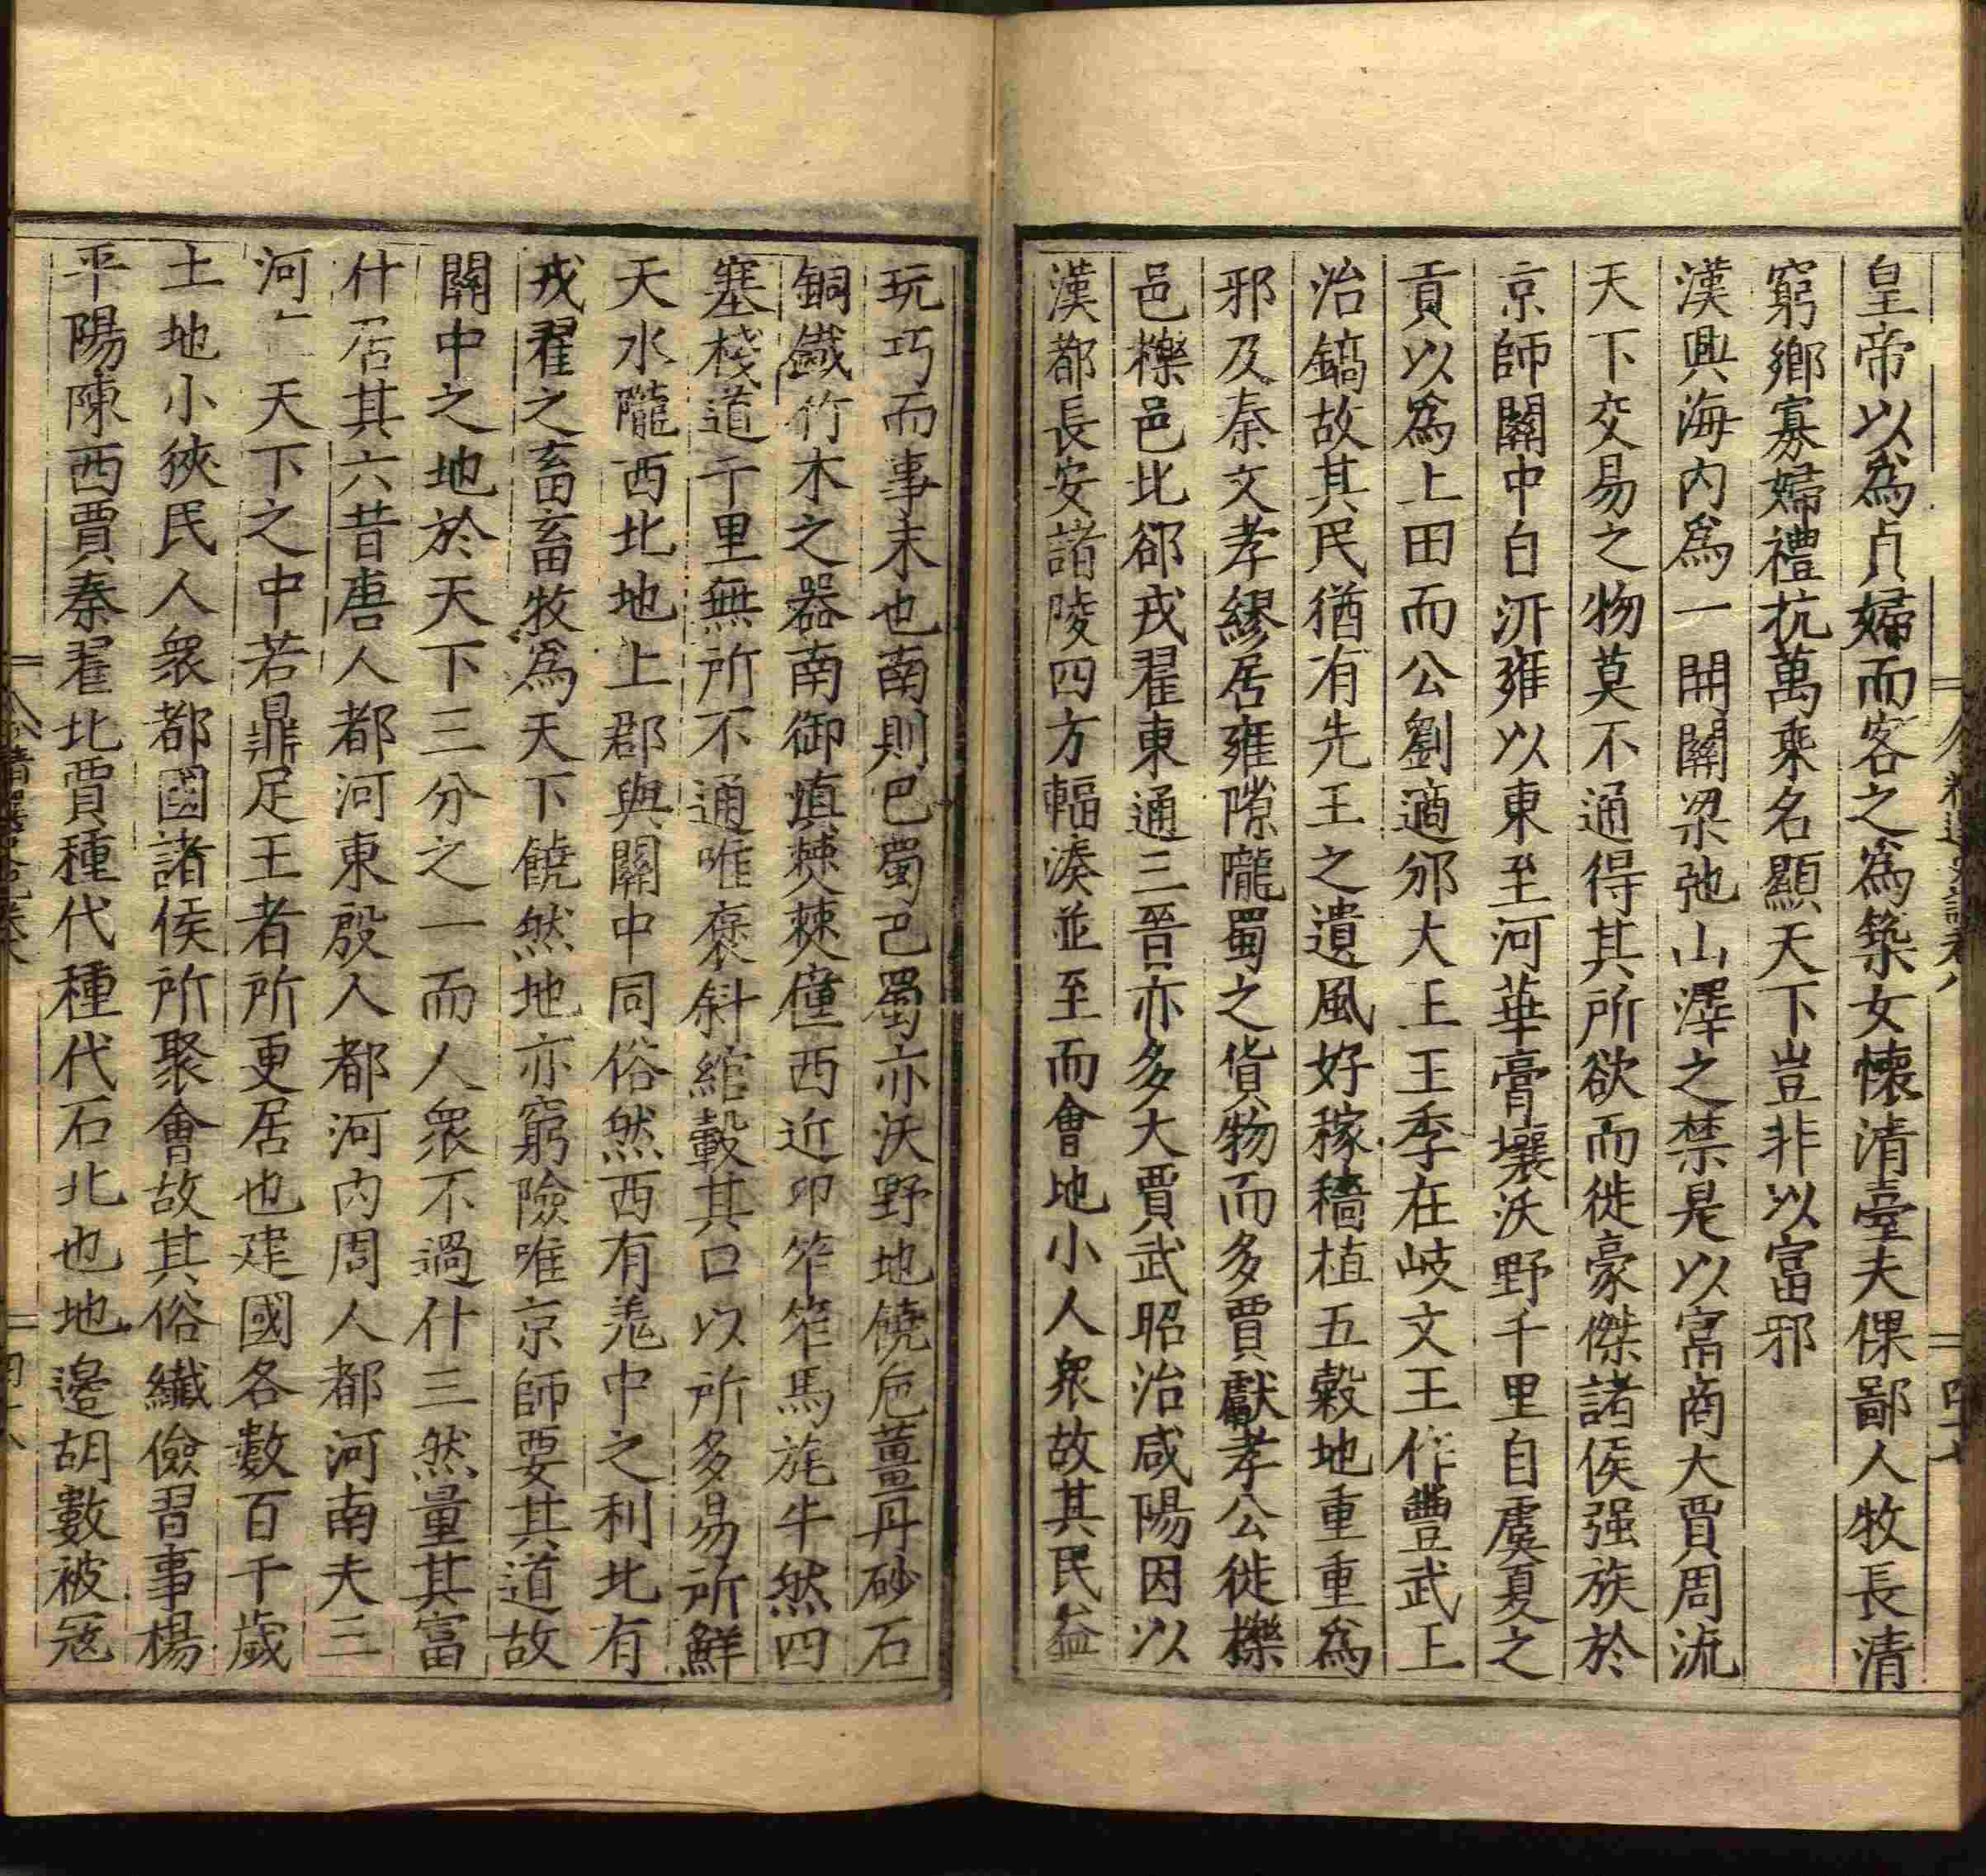 皇帝以爲貞婦而客之爲築女懷清臺夫倮鄙人牧長清
窮鄉寡婦禮抗萬乘名顯天下豈非以富邪
漢興海內爲一開關梁弛山澤之禁是以富商大賈周流
天下交易之物莫不通得其所欲而徙豪傑諸侯强族於
京師關中自汧雍以東至河華膏壤沃野千里自虞夏之
貢以爲上田而公劉適邠大王王季在岐文王作豐武王
治鎬故其民猶有先王之遺風好稼穡植五穀地重重爲
邪及秦文孝繆居雍隙隴蜀之貨物而多賈獻孝公徙櫟
邑櫟邑北郤戎翟東通三晉亦多大賈武昭治咸陽因以
漢都長安諸陵四方輻湊並至而會地小人衆故其民益
玩巧而事末也南則巴蜀巴蜀亦沃野地饒巵薑丹砂石
銅鐵竹木之器南御滇僰僰僮西近卭笮笮馬旄牛然四
塞棧道千里無所不通唯褒斜綰轂其口以所多易所鮮
天水隴西北地上郡與關中同俗然西有羌中之利北有
戎翟之畜畜牧爲天下饒然地亦窮險唯京師要其道故
關中之地於天下三分之一而人衆不過什三然量其富
什居其六昔唐人都河東殷人都河內周人都河南夫三
河天下之中若鼎足王者所更居也建國各數百千歲
土地小狹民人衆都國諸侯所聚會故其俗纖儉習事楊
平陽陳西賈秦翟北賈種代種代石北也地邊胡數被寇